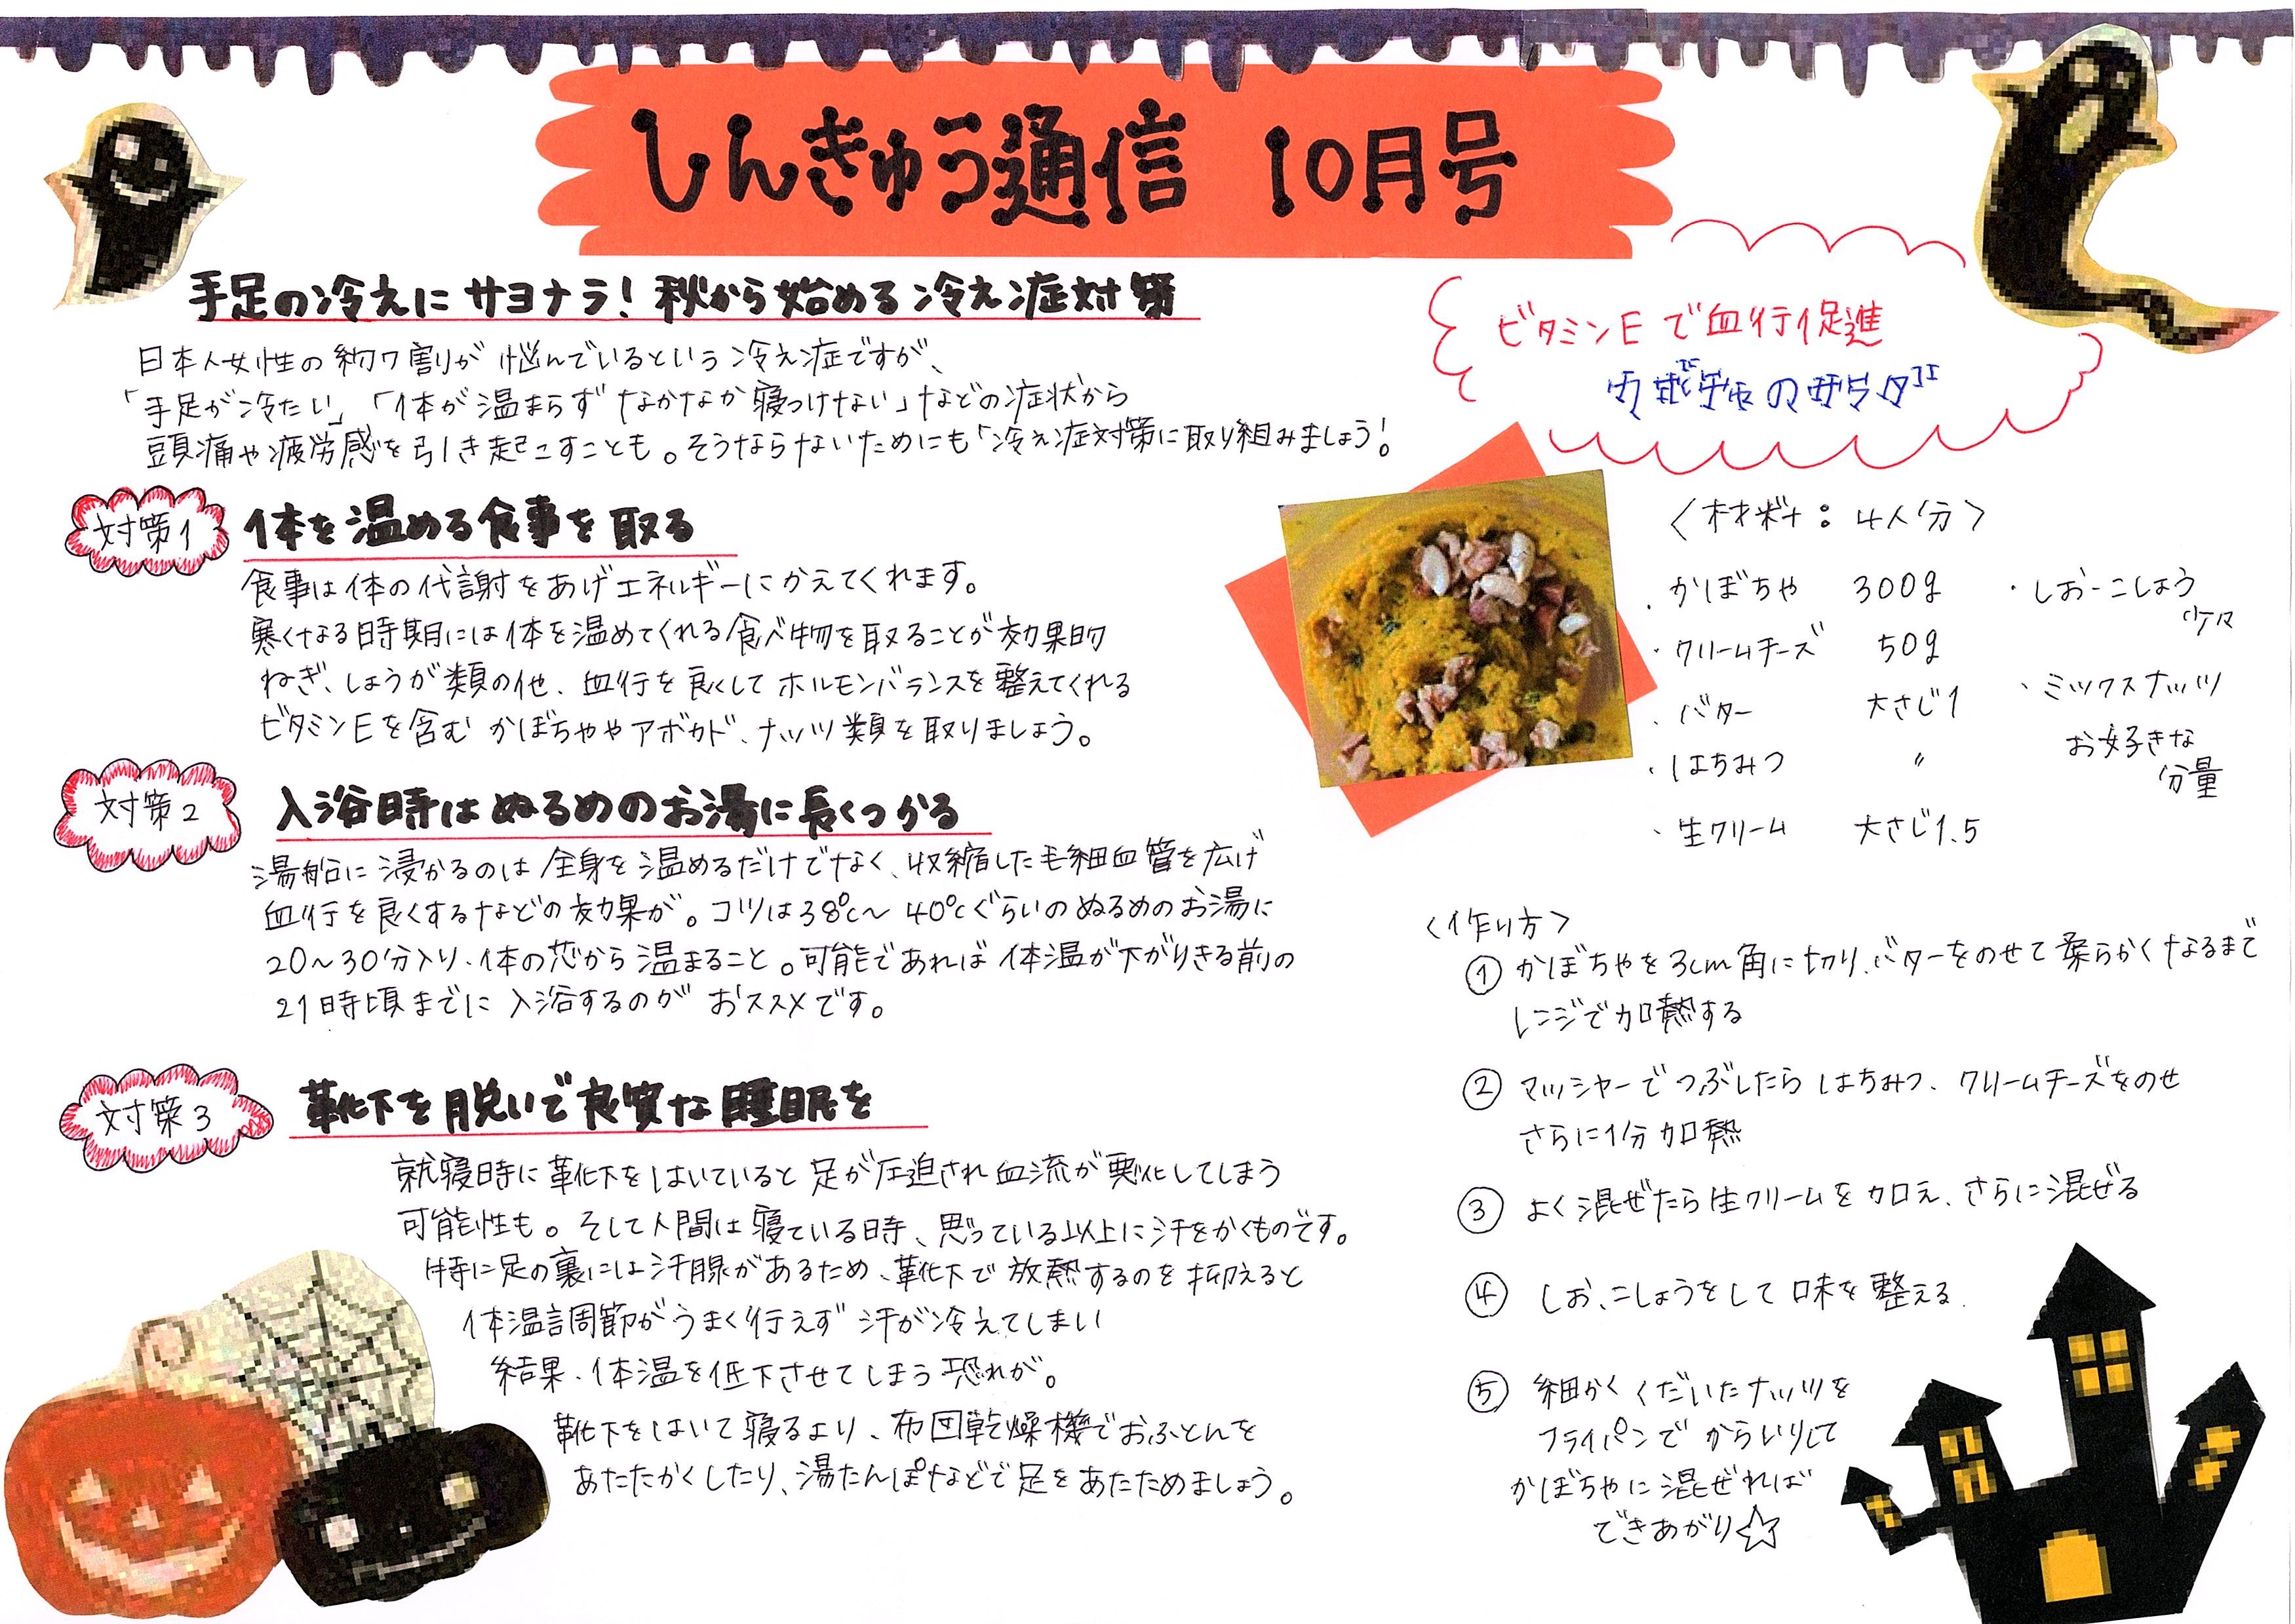 しんきゅう通信 10月号
手足の冷えにサヨナラ！秋から始める冷え症対策
日本人女性の約7割が悩んでいるという冷え症ですが、
「手足が冷たい」「体が温まらずなかなか寝つけない」などの症状から
頭痛や疲労感を引き起こすことも。そうならないためにも「冷え症対策に取り組みましょう！
対策1
体を温める食事を取る
食事は体の代謝をあげエネルギーにかえてくれます。
寒くなる時期には体を温めてくれる食べ物を取ることが効果的
ねぎ、しょうが類の他、血行を良くしてホルモンバランスを整えてくれる
ビタミンEを含むかぼちゃやアボカド、ナッツ類を取りましょう。
対策2
入浴時はぬるめのお湯に長くつかる
湯船に浸かるのは全身を温めるだけでなく、収縮した毛細血管を広げ
血行を良くするなどの効果が。コツは38℃〜40℃ぐらいのぬるめのお湯に
20〜30分入り、体の芯から温まること。可能であれば体温が下がりきる前の
21時頃までに入浴するのがおススメです。
対策3
靴下を脱いで良質な睡眠を
就寝時に靴下をはいていると足が圧迫され血流が悪化してしまう
可能性も。そして人間は寝ている時、思っている以上に汗をかくものです。
特に足の裏には汗腺があるため、靴下で放熱するのを抑えると
体温調節がうまく行えず汗が冷えてしまい
結果、体温を低下させてしまう恐れが。
靴下をはいて寝るより、布団乾燥機でおふとんを
あたたかくしたり、湯たんぽなどで足をあたためましょう。
ビタミンEで血行促進
のサラダ
〈材料：4人分〉
・かぼちゃ 300g
・クリームチーズ 50g
・バター 大さじ1
・はちみつ 〃
・生クリーム 大さじ1.5
・しお-こしょう
少々
・ミックスナッツ
お好きな
分量
〈作り方〉
① かぼちゃを3cm角に切り、バターをのせて柔らかくなるまで
レンジで加熱する
② マッシャーでつぶしたらはちみつ、クリームチーズをのせ
さらに1分加熱
③ よく混ぜたら生クリームを加え、さらに混ぜる
④ しお、こしょうをして味を整える.
⑤ 細かくくだいたナッツを
フライパンでからいりして
かぼちゃに混ぜれば
できあがり☆